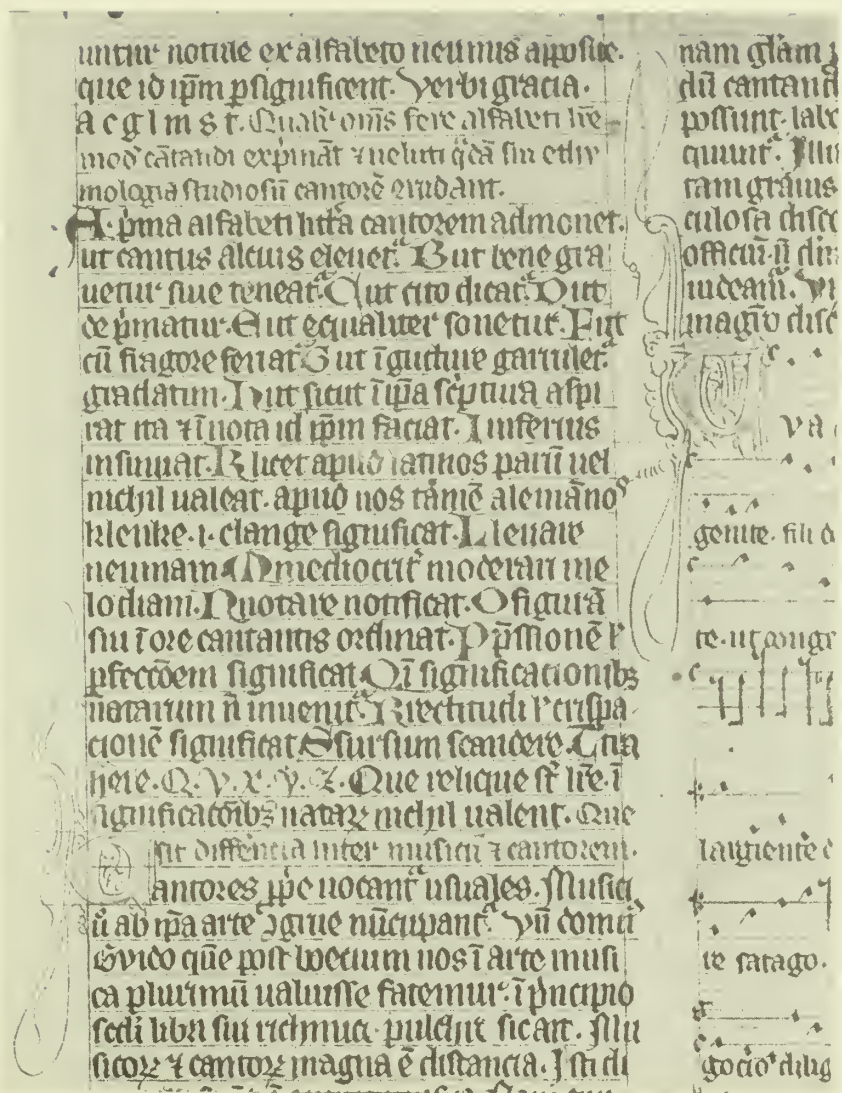 untur notule ex alfabeto neumis apposite.
que id ip̄m p̄significent. Verbi gratia.
A c g l m s t. Qualit̄ om̄s fere alfabeti lr̄e
mod' cātandi exp̄imāt ⁊ ueluti q̄dā sin ethy
mologia studiosū cantorē erudant.
A. p̄ma alfabeti litt̄a cantorem admonet.
ut cantus altius eleuet̄. B ut bene gra
uetur siue teneat̄. C ut cito dicat̄. D ut
dep̄matur. E ut equaliter sonetur. F ut
cū fragore feriat̄ G ut ī gutture garrulet̄
gradatim. H ut sicut ī ip̄a sc̄ptura aspi
rat ita ⁊ ī nota id ip̄m faciat. I inferius
insinuat. K licet apud latinos parū uel
nichil ualeat. apud nos tamē alemāno⁹
klenke .i. clange significat. L leuare
neumam. M mediocrit̄ moderari me
lodiam. N notare notificat. O figurā
sui ī ore cantantis ordinat. P p̄ssionē ł
p̄fectōem significat. Q ī significationibꝫ
natarum n̄ inuenit̄. R rectitudi ł crispa
cionē significat. S sursum scandere. T tra
here. Q. V. x. y. z. Que relique sт̄ lr̄e. ī
significatōibꝫ notaꝝ nichil ualent. Que
sit differ̄ncia inter musicū ⁊ cantorem.
Cantores p̄pe uocant̄ usuales. Musici
ū ab ip̄a arte ꝯgrue nūcupant̄. Vn̄ domn̄
Gvido quē post boetium nos ī arte musi
ca plurimū ualuisse fatemur. ī p̄ncipio
sedi libri sui richmica pulchre sic ait. Mu
sicoꝝ ⁊ cantoꝝ magna ē distancia. Isti di
nam gl̄am
dū cantand
possunt. labo
tam grauis
culosa disc
officiū.
iudeam. vi
magīo disc
va
genite. fili d
te. ut congr
largiente
te satago.
gocio⁹ dilig